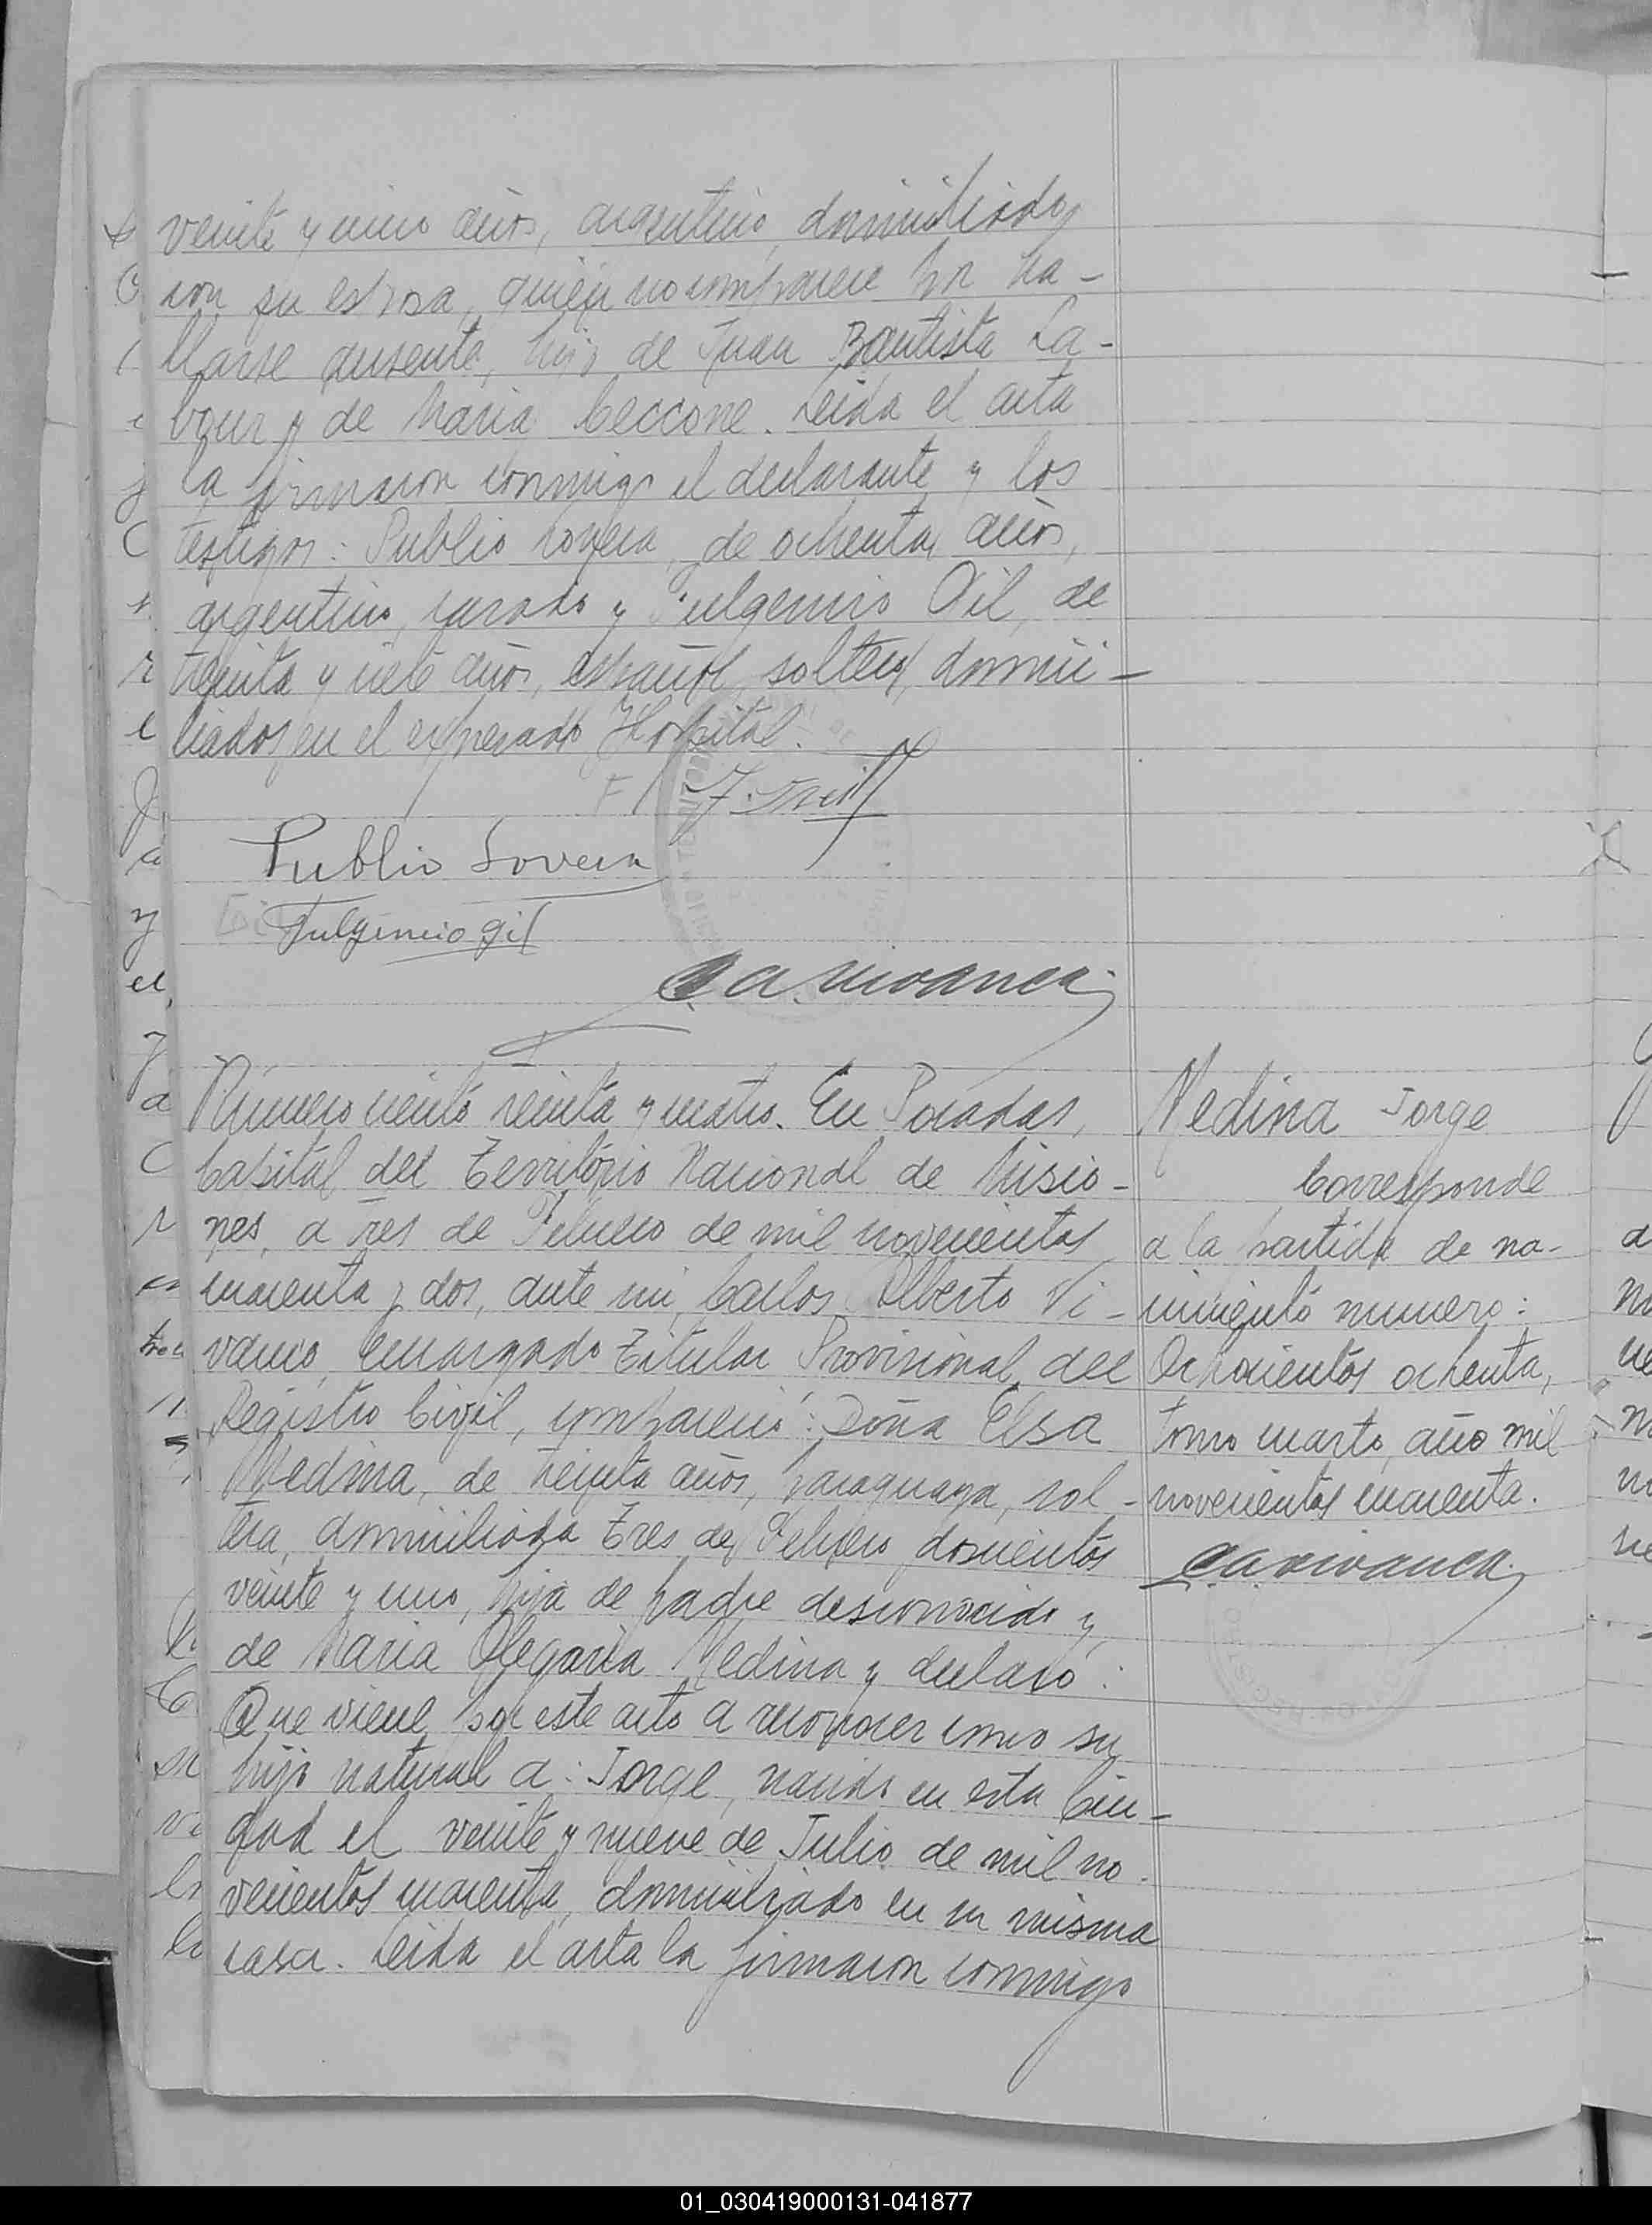 veinte y cinco años, argentino, domiciliado
con su esposa, quien no comparece por ha-
llarse ausente, hijo de Juan Bautista La-
bour y de Maria Ceccone. Leida el acta
la firmaron conmigo el declarante y los
testigos: Publio Lovera, de ochenta años,
argentino, casado y Fulgencio Gil, de
treinta y siete años, español, soltero, domici-
liados en el expresado Hospital.
Publio Lovera
Fulgencio Gil
C.A. Vivanco
Número ciento treinta y cuatro. En Posadas,
Capital del Territorio Nacional de Misio-
nes, a tres de Febrero de mil novecientos
cuarenta y dos, ante mi, Carlos Alberto Vi-
vanco, Encargado Titular Provisional del
Registro Civil, compareció: Doña Elsa
Medina, de treinta años, paraguaya, sol-
tera, domiciliada Tres de Febrero doscientos
veinte y uno, hija de padre desconocido y
de Maria Olegaria Medina y declaró:
Que viene por este acto a reconocer como su
hijo natural a: Jorge, nacido en esta Ciu-
dad el veinte y nueve de Julio de mil no-
vecientos cuarenta, domiciliado en su misma
casa. Leida el acta la firmaron conmigo
Medina Jorge
Corresponde
a la partida de na-
cimiento numero:
Ochocientos ochenta,
tomo cuarto, año mil
novecientos cuarenta.
C.A. Vivanco
01_030419000131-041877